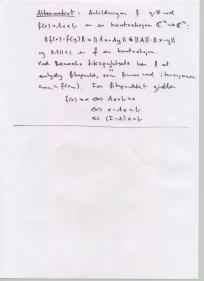 Alternativt: Avbildningen f gitt ved
f(x) = Ax + b er en kontraksjon ℂⁿ → ℂⁿ:
‖f(x) - f(y)‖ = ‖Ax - Ay‖ ≤ ‖A‖·‖x - y‖
og ‖A‖ < 1 er f en kontraksjon.
Ved Banachs fikspunktsats har f et
entydig fikspunkt, som finnes ved iterasjonen
xₙ₊₁ = f(xₙ). For fikspunktet gjelder
f(x) = x ⇔ Ax + b = x
⇔ x - Ax = b
⇔ (I - A)x = b